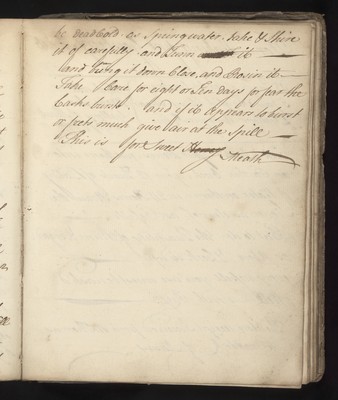 be dead Cold as Spring water. take & Skin
it of carefully and Tunn it —
and bung it down Close, and Rosin it —
Take Care for eight or ten days for fear the
Casks burst. and if it appears to burst
or frets much give air at the Spill —
This is for Sweet Honey
Meath